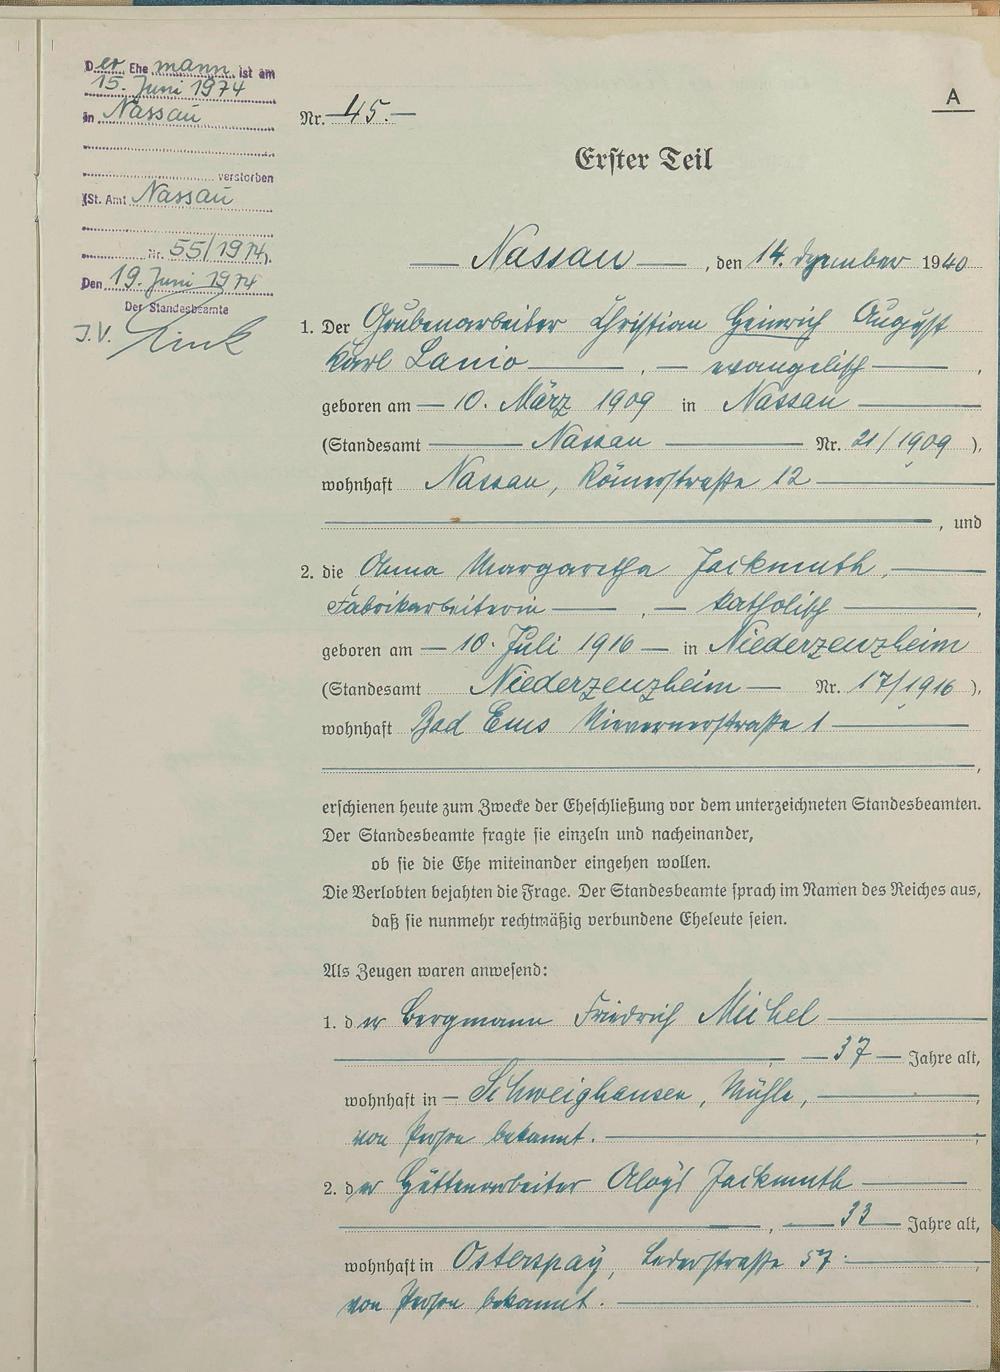 Der Ehe mann ist am
15. Juni 1974
in Nassau
verstorben
(St. Amt Nassau
Nr. 55/1974).
Den 19. Juni 1974
Der Standesbeamte
J.V. Link
A
Nr. 45.
Erster Teil
Nassau, den 14. Dezember 1940
1. Der Grubenarbeiter Christian Heinrich August
Karl Lanio, evangelisch,
geboren am 10. März 1909 in Nassau
(Standesamt Nassau Nr. 21/1909),
wohnhaft Nassau, Römerstraße 12
, und
2. die Anna Margaretha Jackmuth,
Fabrikarbeiterin, katholisch,
geboren am 10. Juli 1916 in Niederzeuzheim
(Standesamt Niederzeuzheim Nr. 17/1916),
wohnhaft Bad Ems Nievernerstraße 1
,
erschienen heute zum Zwecke der Eheschließung vor dem unterzeichneten Standesbeamten.
Der Standesbeamte fragte sie einzeln und nacheinander,
ob sie die Ehe miteinander eingehen wollen.
Die Verlobten bejahten die Frage. Der Standesbeamte sprach im Namen des Reiches aus,
daß sie nunmehr rechtmäßig verbundene Eheleute seien.
Als Zeugen waren anwesend:
1. der Bergmann Friedrich Michel
, 37 Jahre alt,
wohnhaft in Schweighausen, Mühle,
von Person bekannt.
2. der Hüttenarbeiter Aloys Jackmuth
, 33 Jahre alt,
wohnhaft in Osterspay, 57.
von Person bekannt.